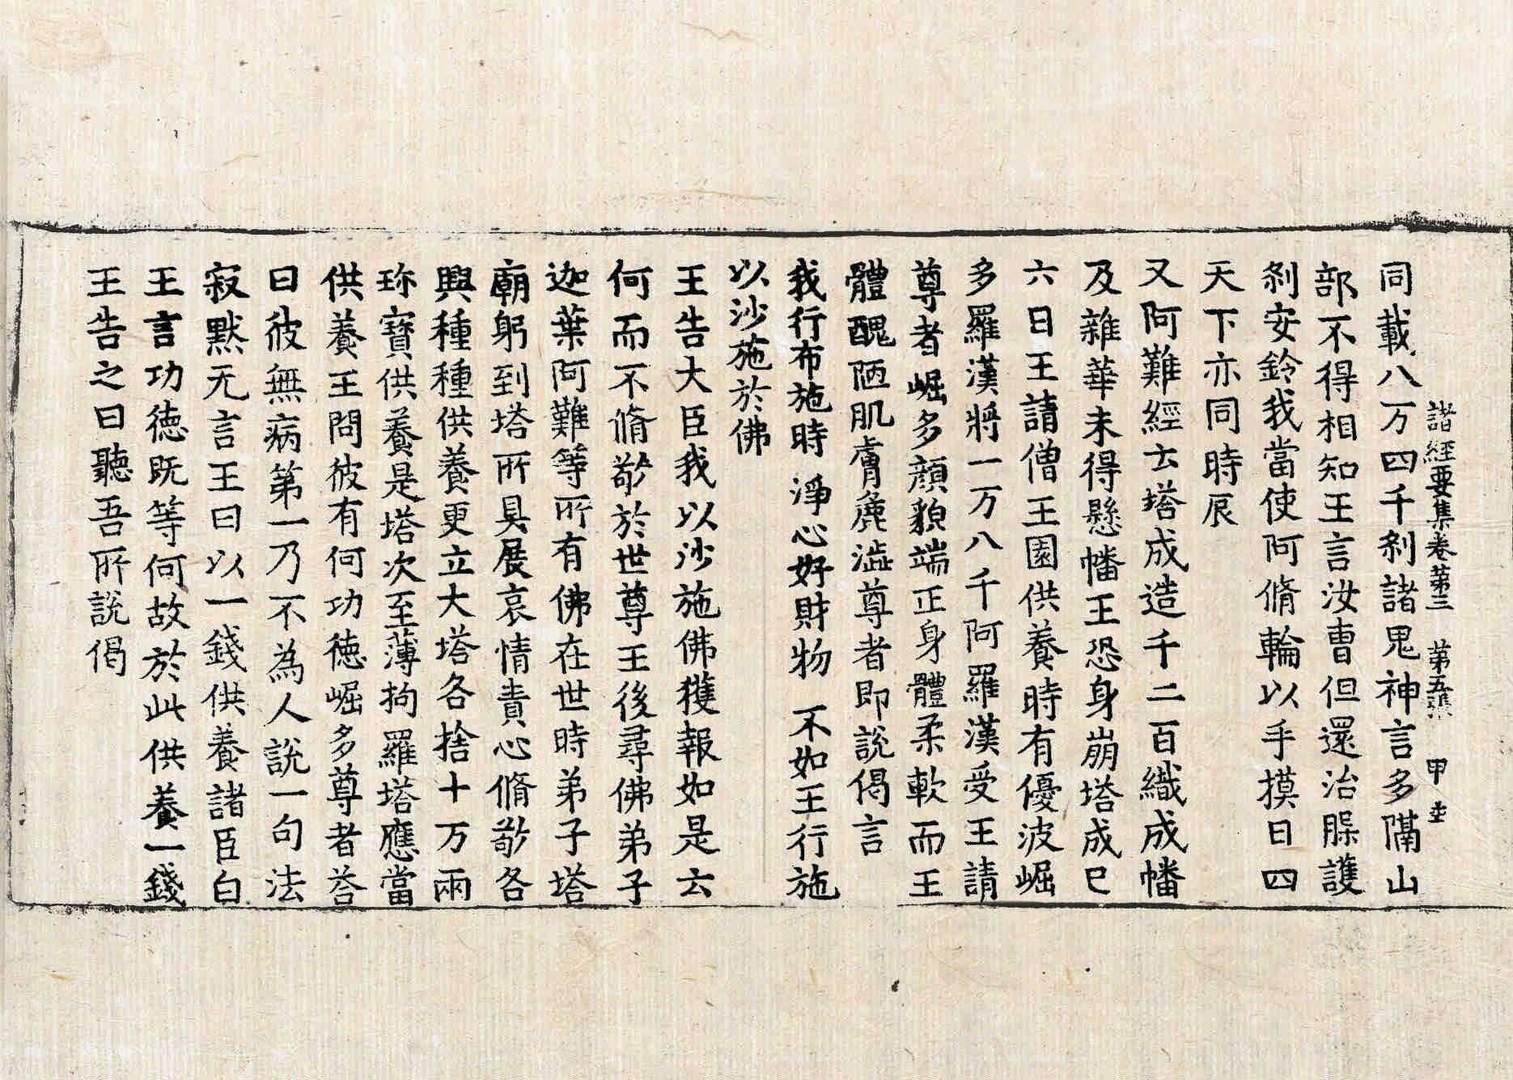 諸經要集卷第三 第五張 甲
同載八万四千刹諸鬼神言多隔山
部不得相知王言汝曺但還治臊護
刹安鈴我當使阿脩輪以手摸日四
天下亦同時辰
又阿難經云塔成造千二百織成幡
及雜華未得懸幡王恐身崩塔成已
六日王請僧王園供養時有優波崛
多羅漢將一万八千阿羅漢受王請
尊者崛多顔貌端正身體柔軟而王
體醜陋肌膚麁澁尊者即說偈言
我行布施時 淨心好財物 不如王行施
以沙施於佛
王告大臣我以沙施佛獲報如是云
何而不脩敬於世尊王後尋佛弟子
迦葉阿難等所有佛在世時弟子塔
廟躬到塔所具展哀情責心脩敬各
興種種供養更立大塔各捨十万兩
珎寶供養是塔次至薄拘羅塔應當
供養王問彼有何功徳崛多尊者荅
曰彼無病第一乃不為人說一句法
寂默无言王曰以一錢供養諸臣白
王言功徳既等何故於此供養一錢
王告之曰聽吾所說偈